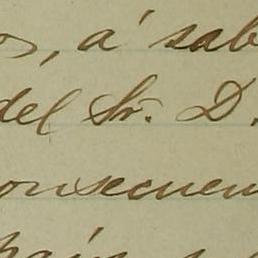 os, á sab
del Sr. D.
onsecuen